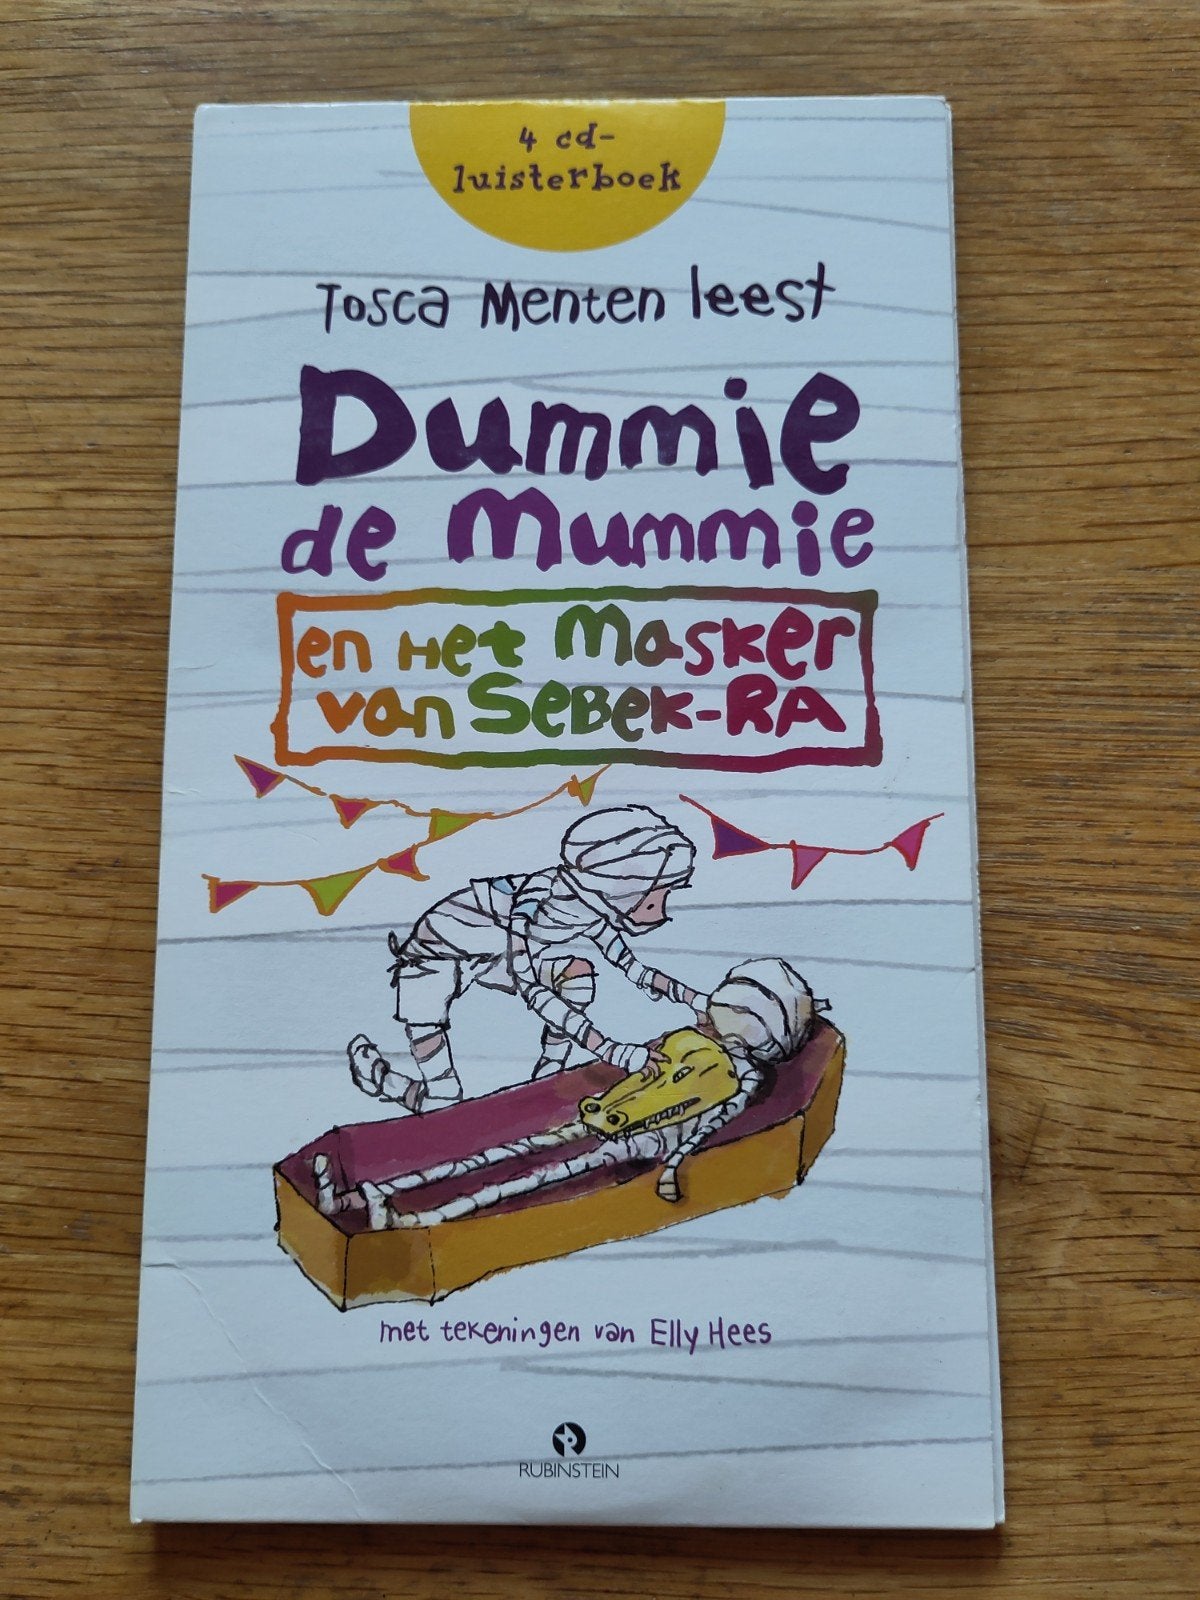 4 cd-
luisterboek
Tosca Menten leest
Dummie
de Mummie
en Het Masker
van SeBeK-RA
met tekeningen van Elly Hees
RUBINSTEIN